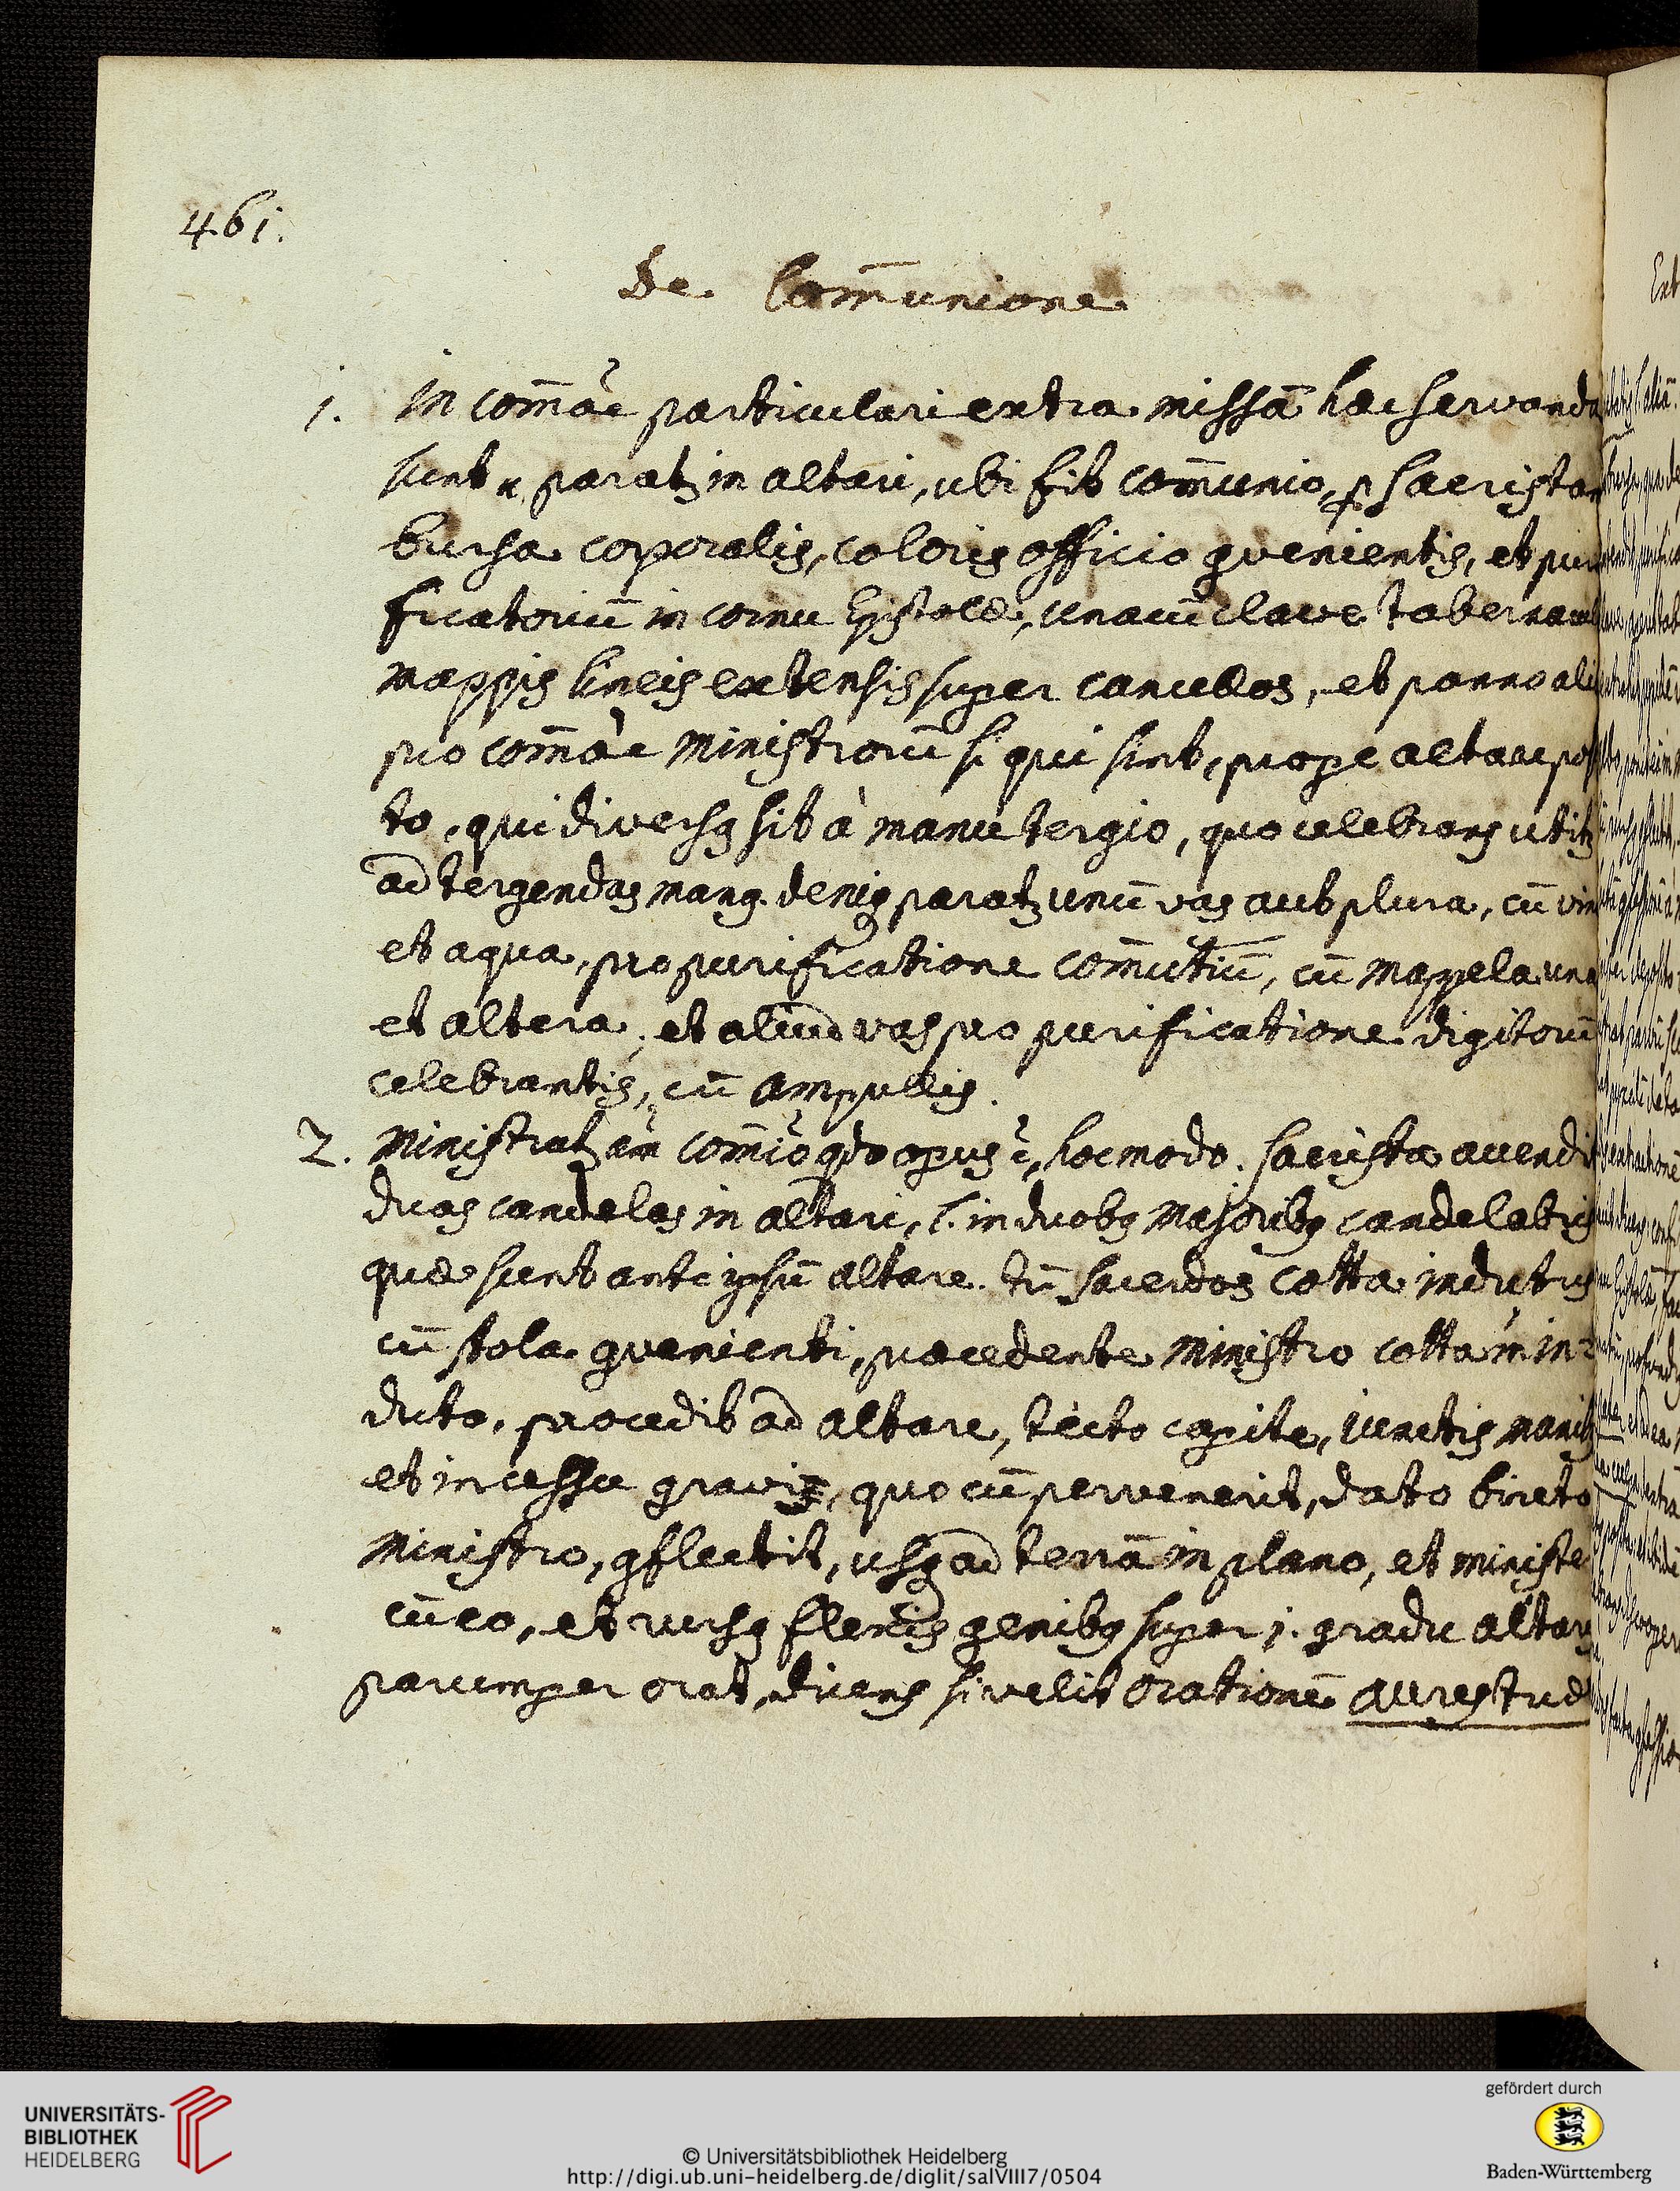 461.
De Com̄unione
1. In com̄õe particulari extra missā hæc servanda
sunt paratʒ in altari, ubi fit com̄unio, ꝑ sacristan
bursa corporalis, coloris officio ꝯvenientis, et puri
ficatoriū in cornu Epistolæ, unacū clave tabernacul
mappis lineis extensis super cancellos, et panno ali
pro com̄õe Ministrorū si qui sint, prope altare posi
to, qui diversꝯ sit à manutergio, quo celebrans utitʒ
ad tergendas manꝯ. deniqꝫ paratʒ unū vas aut plura, cū vin
et aqua, pro purificatione com̄utiū, cū mappula una
et altera, et aliud vas pro purificatione digitorū
celebrantis, cū ampullis.
2. Ministratʒ com̄io opus ẽ, hoc modo. Sacrista accendit
duas candelas in altari, l. in duobꝯ Majoribꝯ candelabris
quæ sunt ante ipsū altare. tū sacerdos cotta indutus
cū stola ꝯvenienti, præcedente Ministro cotta in-
duto, procedit ad altare, tecto capite, iunctis manibꝯ
et incessu gravi, quo cū pervenerit, dato bireto
Ministro, gflectit, usqꝫ ad terrā in plano, et ministe
cū eo, et rursꝯ flexis genibꝯ super 1. gradu altaris
parumper orat, dicens si velit orationē
© Universitätsbibliothek Heidelberg
http://digi.ub.uni-heidelberg.de/diglit/salVIII7/0504
UNIVERSITÄTS-
BIBLIOTHEK
HEIDELBERG
gefördert durch
Baden-Württemberg